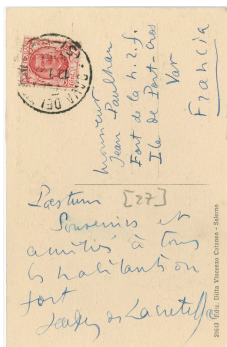 Monsieur
Jean Paulhan
Fort de la
Ile de Port-Cros
Var
Francia
Paestum [27]
Souvenirs et
amitiés à tous
les habitants du
fort
Jacques de Lacretelle
Ditta Vincenzo Carbone - Salerno